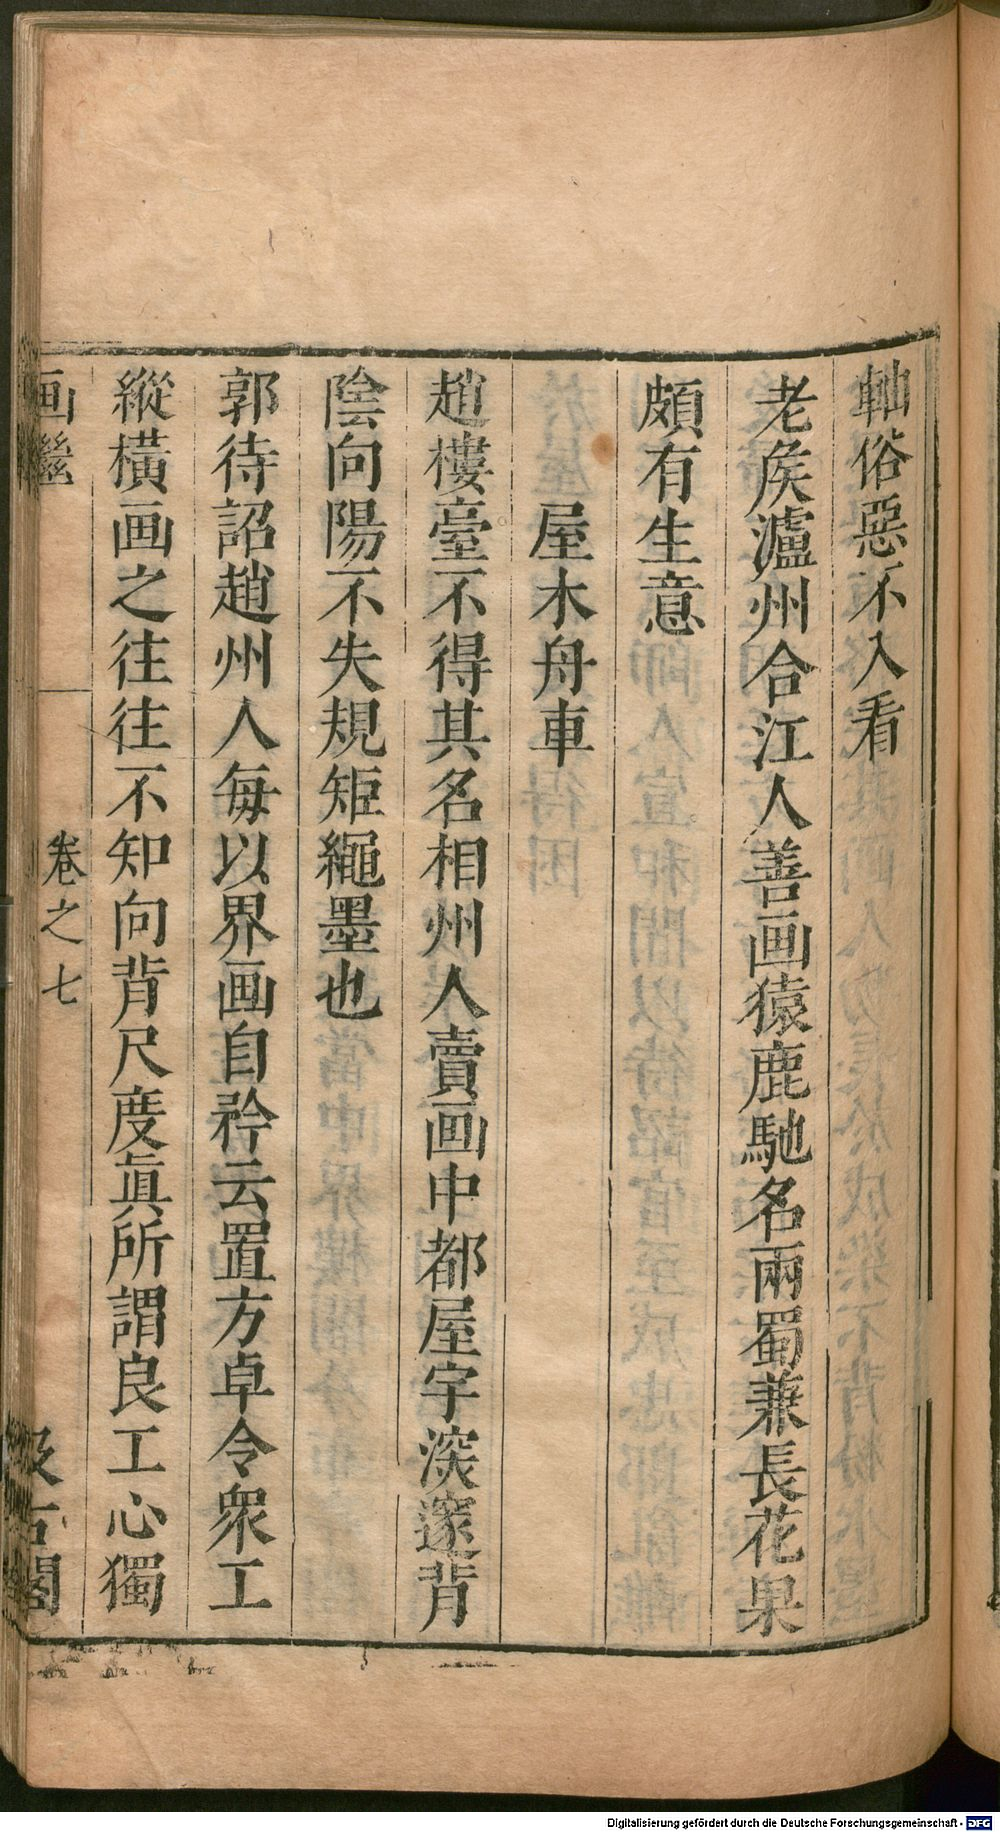 軸俗惡不入看
老侯瀘州合江人善画猿鹿馳名兩蜀兼長花果
頗有生意
屋木舟車
趙樓臺不得其名相州人賣画中都屋宇深邃背
陰向陽不失規矩繩墨也
郭待詔趙州人每以界画自矜云置方卓令衆工
縱橫画之往往不知向背尺度眞所謂良工心獨
画繼
卷之七
汲古閣
Digitalisierung gefördert durch die Deutsche Forschungsgemeinschaft - DFG